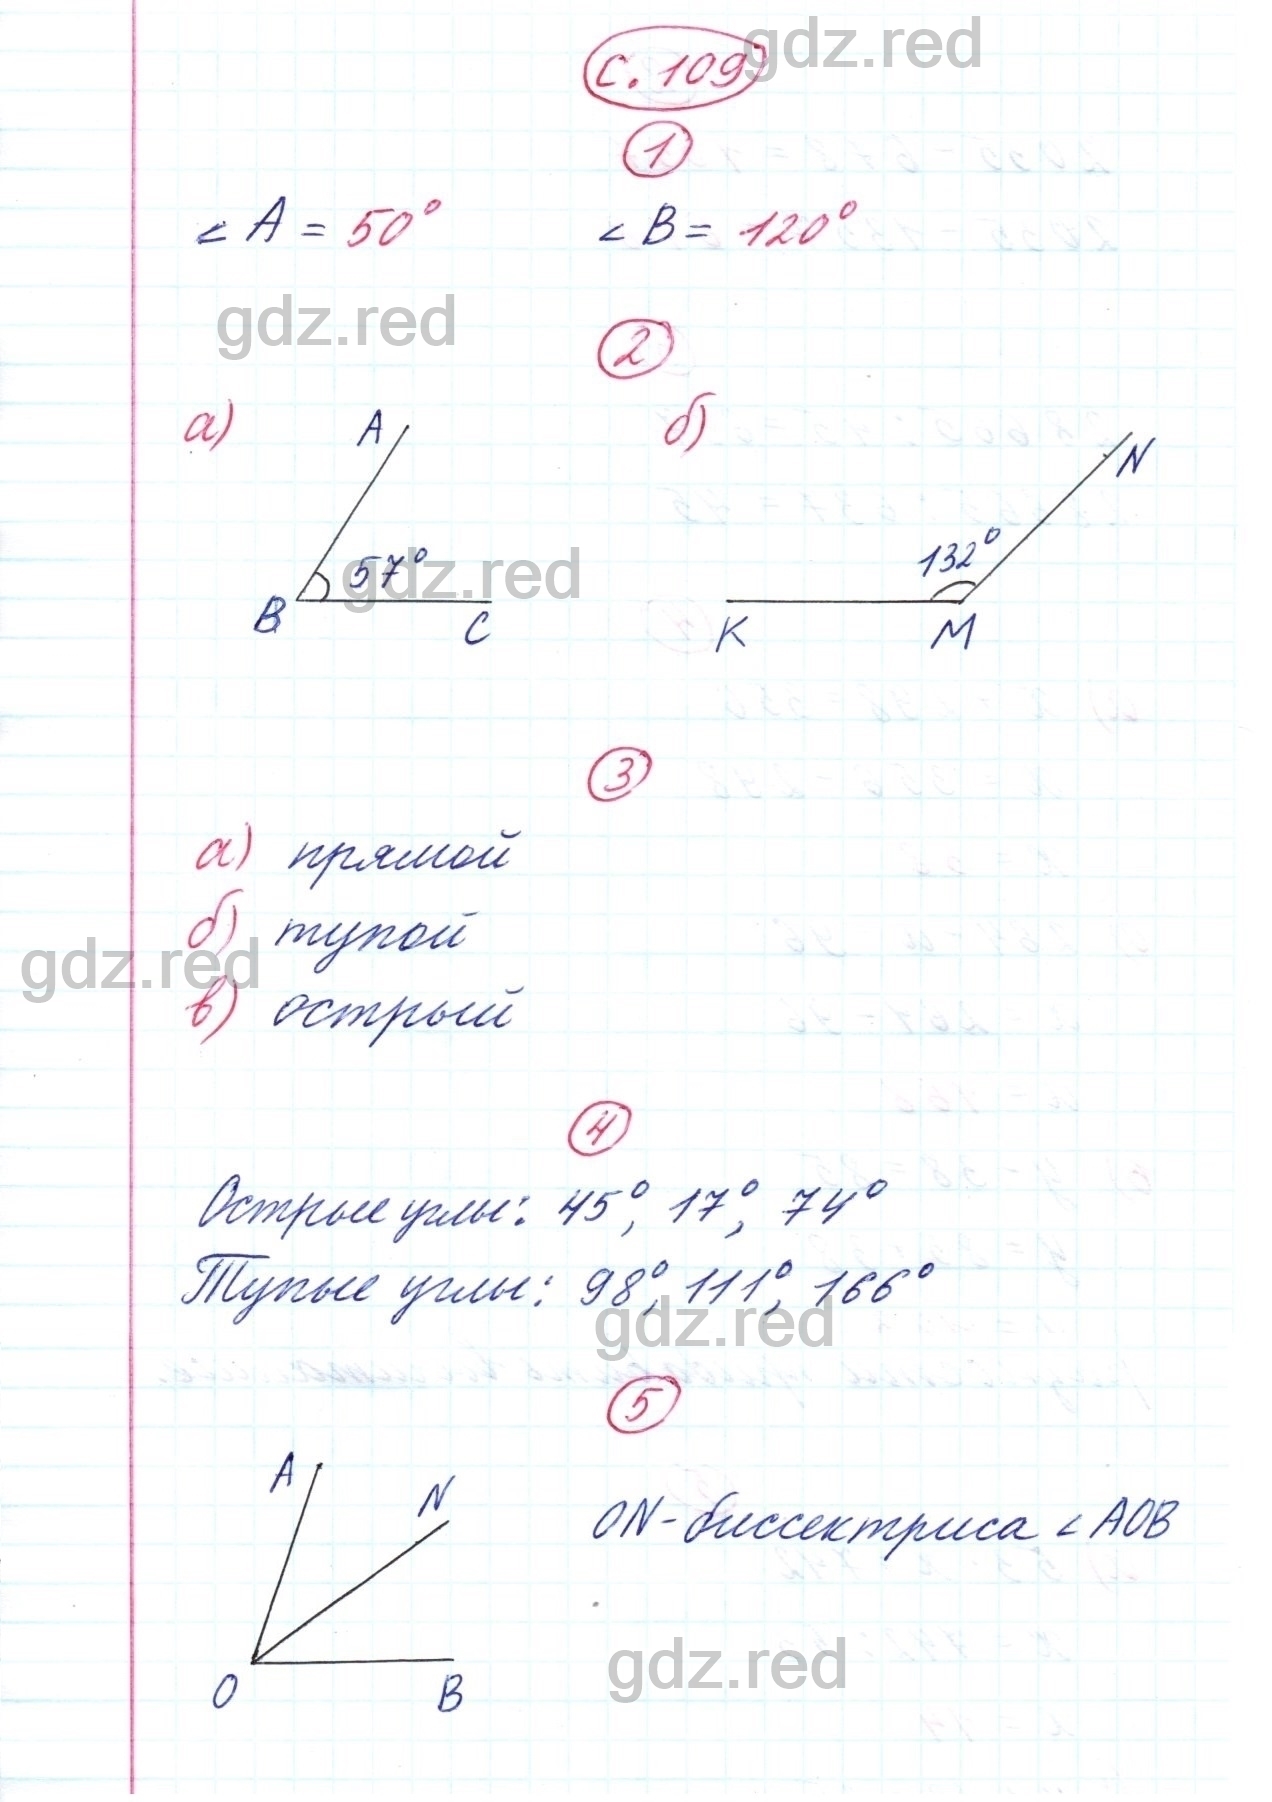 gdz.red
с. 109
1
∠A = 50° ∠B = 120°
gdz.red
2
а) A б) N
57° 132°
gdz.red
B C K M
3
а) прямой
б) тупой
gdz.red
в) острый
4
Острые углы: 45°, 17°, 74°
Тупые углы: 98°, 111°, 166°
gdz.red
5
A N
ON - биссектриса ∠AOB
gdz.red
O B